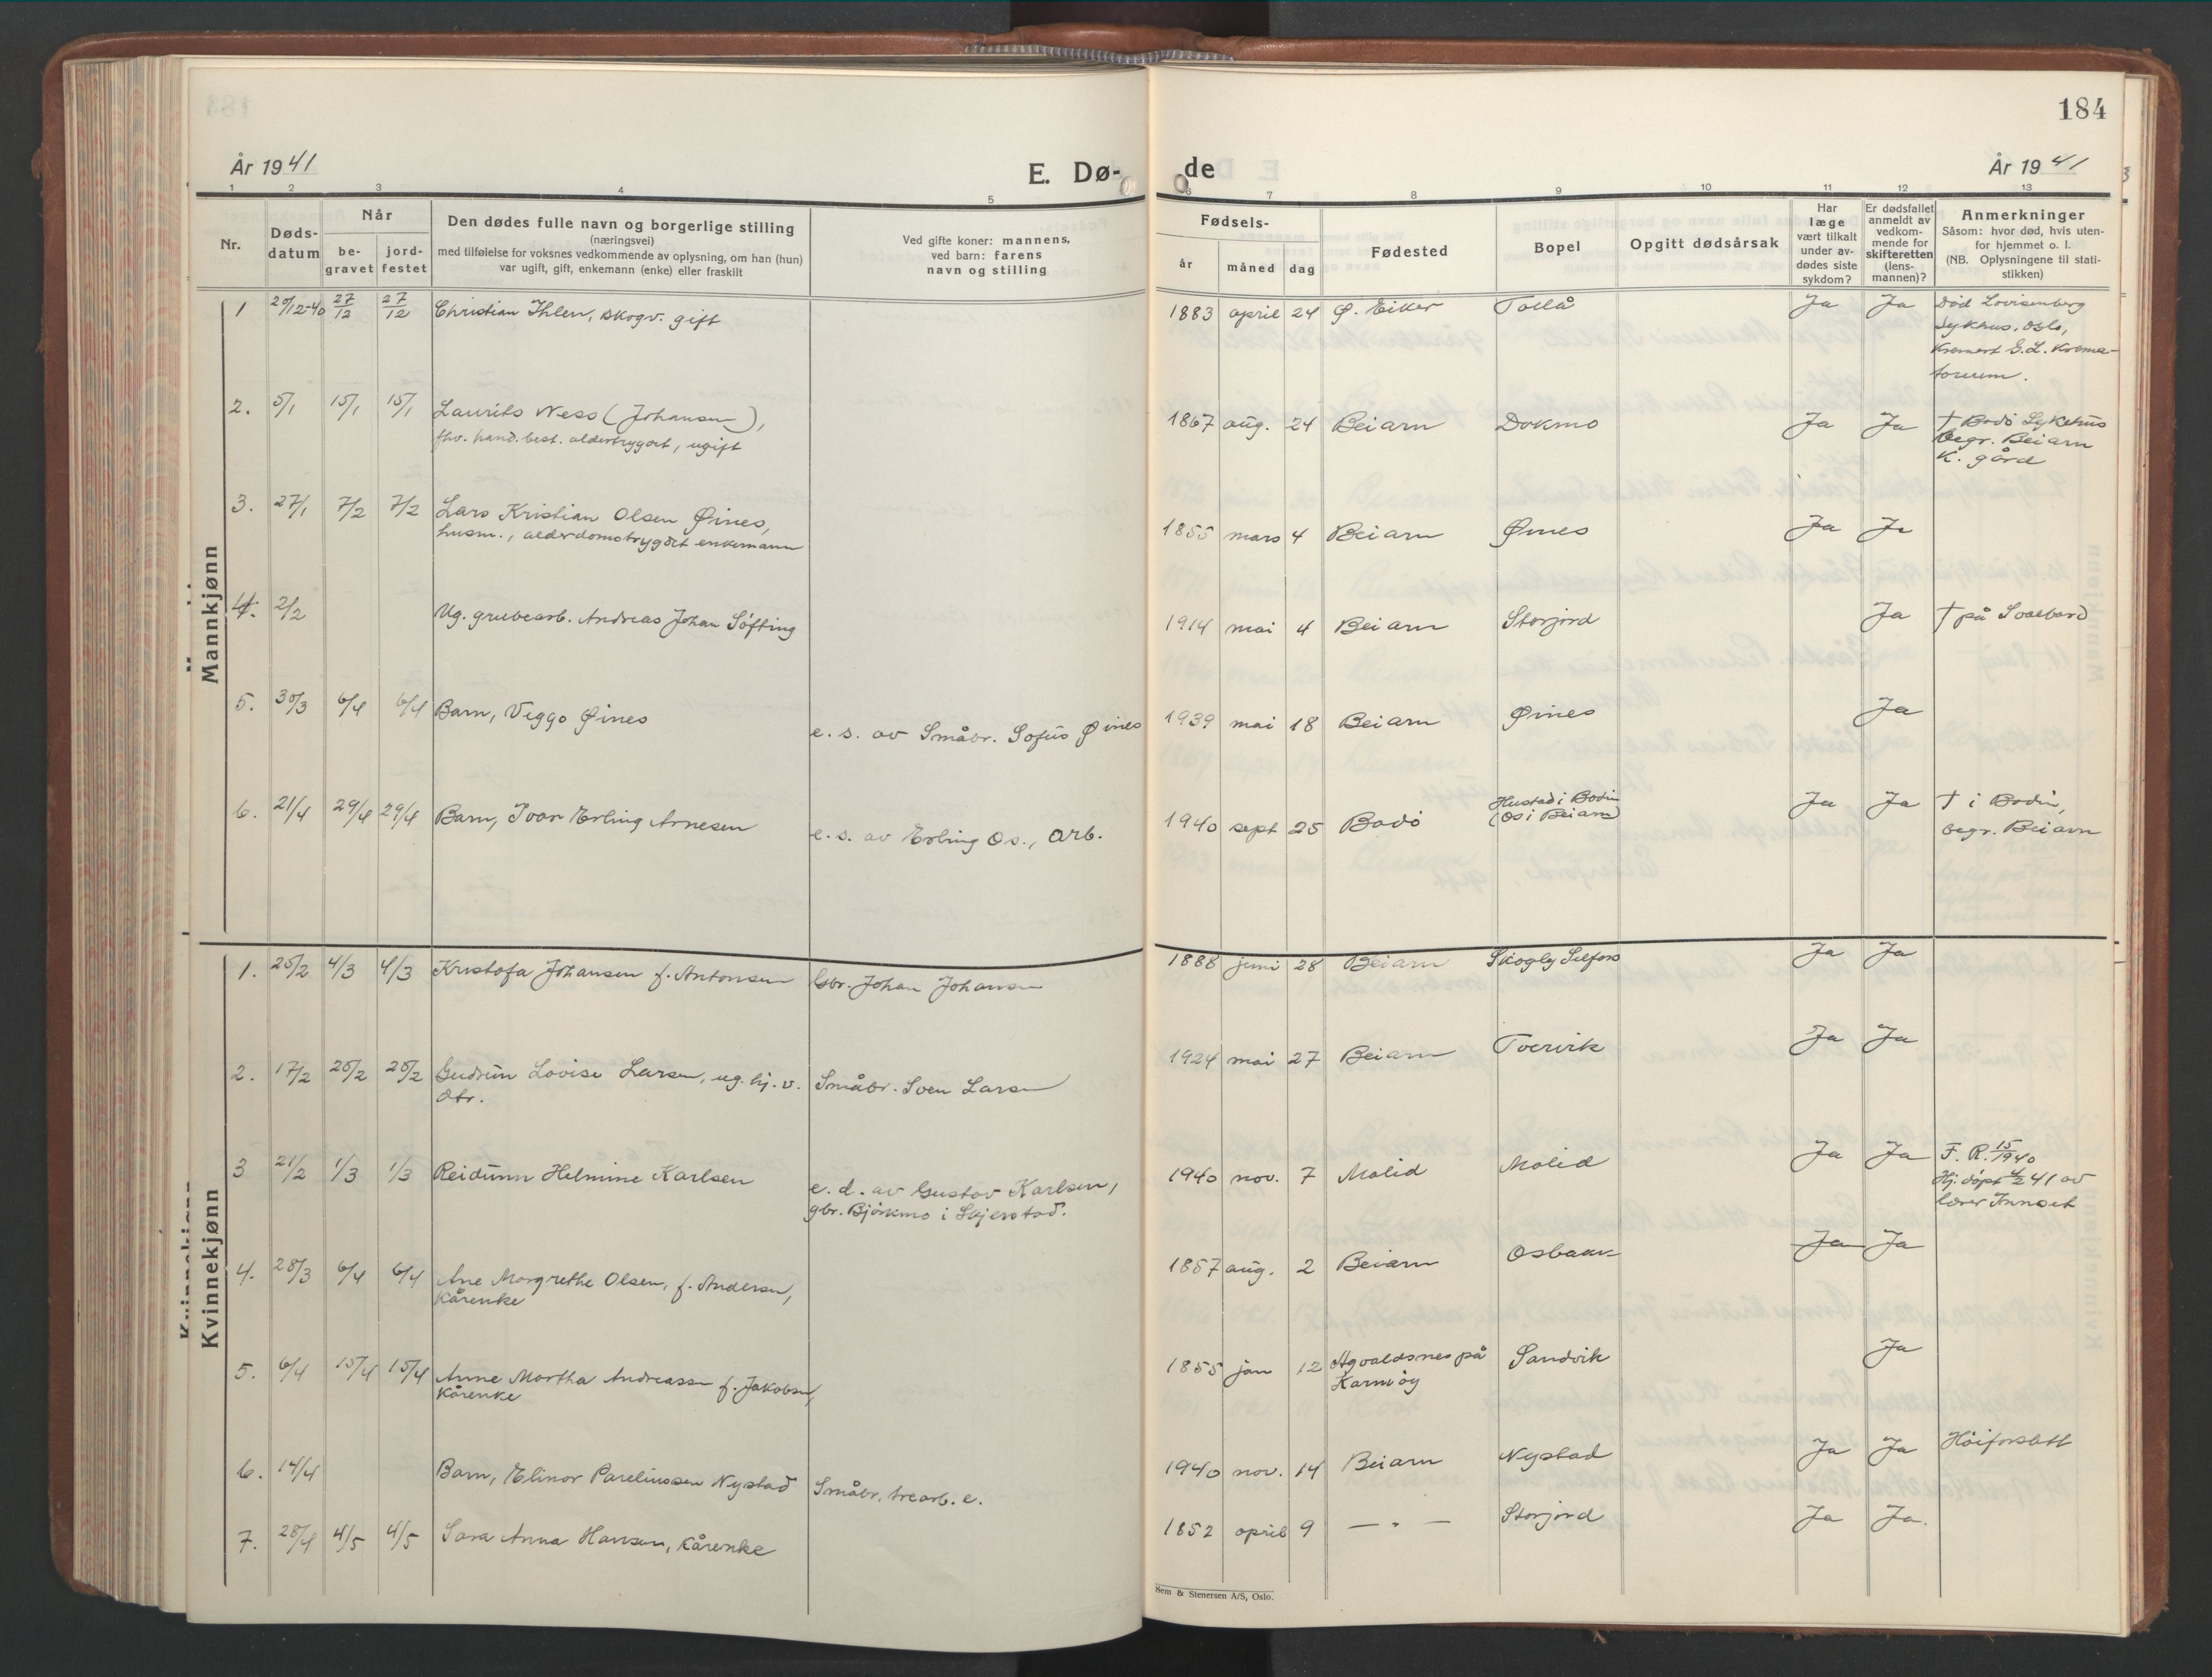 184
År 1941
E. Dø-
de
År 1941
1 2 3 4 5 6 7 8 9 10 11 12 13
Nr.
Døds-
datum
Når
be-
gravet
jord-
festet
Den dødes fulle navn og borgerlige stilling
(næringsvei)
med tilføielse for voksnes vedkommende av oplysning, om han (hun)
var ugift, gift, enkemann (enke) eller fraskilt
Ved gifte koner: mannens,
ved barn: farens
navn og stilling
Fødsels-
år måned dag
Fødested
Bopel
Opgitt dødsårsak
Har
læge
vært tilkalt
under av-
dødes siste
sykdom?
Er dødsfallet
anmeldt av
vedkom-
mende for
skifteretten
(lens-
mannen)?
Anmerkninger
Såsom: hvor død, hvis uten-
for hjemmet o. l.
(NB. Oplysningene til stati-
stikken)
Mannkjønn
1 20/12-40 27/12 27/12 Christian Ihlen, skogv. gift 1883 april 24 Ø. Eiker Tollå Ja Ja Död Lovisenberg
Sykehus, Oslo,
Kremert G.L. Krema-
torium.
2. 5/1 15/1 15/1 Laurits Ness (Johansen), 1867 aug. 24 Beiarn Dokmo Ja Ja † Bodö Sykehus
fhv. hand. best. alderstrygdet, ugift begr. Beiarn
K. gård
3. 27/1 7/2 7/2 Lars Kristian Olsen Øines, 1855 mars 4 Beiarn Øines Ja Ja
husm., alderdomstrygdet enkemann
4. 2/2 Ug. grubearb. Andreas Johan Söfting 1914 mai 4 Beiarn Storjord Ja † på Svalbard
5. 30/3 6/4 6/4 Barn, Viggo Øines e. s. av Småbr. Sofus Øines 1939 mai 18 Beiarn Øines Ja
6. 21/4 29/4 29/4 Barn, Ivar Erling Arnesen e. s. av Erling Os., arb. 1940 sept 25 Bodö Hustad i Bodin Ja Ja † i Bodin,
(Os i Beiarn) begr. Beiarn
Kvinnekjønn
1. 25/2 4/3 4/3 Kristofa Johansen f. Antonsen Gbr. Johan Johansen 1888 juni 28 Beiarn Skogly Selfors Ja Ja
2. 17/2 25/2 25/2 Gudrun Lovise Larsen, ug. hj. v. Småbr. Sven Larsen 1924 mai 27 Beiarn Tvervik Ja Ja
dtr.
3 21/2 1/3 1/3 Reidunn Helmine Karlsen e. d. av Gustav Karlsen, 1940 nov. 7 Molid Molid Ja Ja F. R. 15/1940
gbr. Björkmo i Skjerstad. Hj. döpt 4/2 41 av
lærer Innset
4. 28/3 6/4 6/4 Ane Margrethe Olsen, f. Andersen, 1857 aug. 2 Beiarn Osbakk Ja Ja
Kårenke
5. 6/4 15/4 15/4 Anne Martha Andreassen f. Jakobsen, 1855 jan 12 Agvaldsnes på Sandvik Ja
Kårenke Karmöy
6. 14/4 Barn, Elinor Pareliussen Nystad Småbr, trearb. e. 1940 nov. 14 Beiarn Nystad Ja Ja Höiforslett
7. 28/4 4/5 4/5 Sara Anna Hansen, Kårenke 1852 april 9 — " — Storjord Ja Ja.
Sem & Stenersen A/S, Oslo.